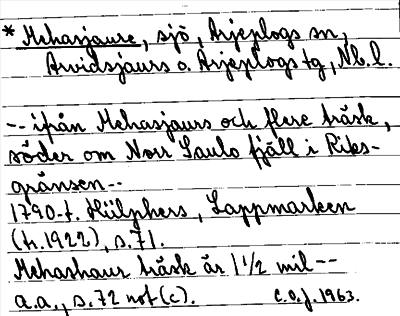 * Mehasjaure, sjö, Arjeplogs sn,
Arvidsjaurs o. Arjeplogs tg, Nb.l.
-- ifrån Mehasjaurs och flere träsk,
söder om Norr Saulo fjäll i Riks-
gränsen--
1790-t. Hülphers, Lappmarken
(tr. 1922), s. 71.
Mehashaur träsk är 1 1/2 mil --
a.a., s. 72 not (c). C.O.J. 1963.